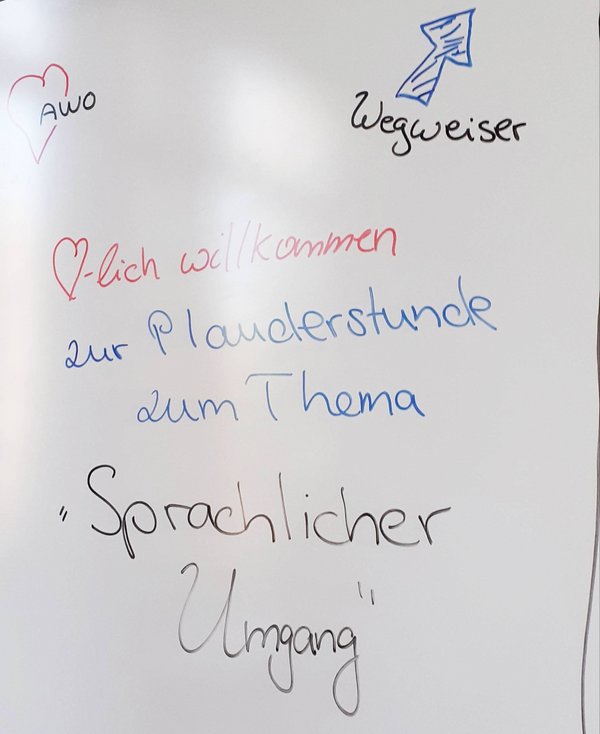 AWO
Wegweiser
-lich willkommen
zur Plauderstunde
zum Thema
"Sprachlicher
Umgang"